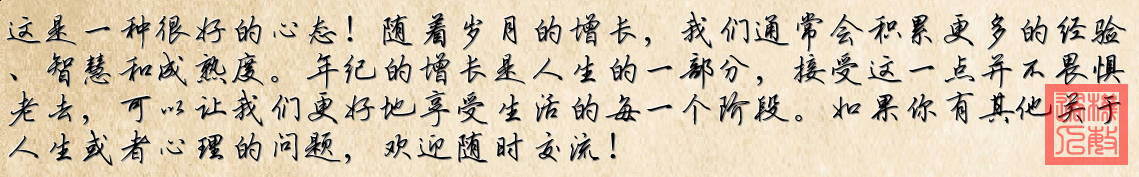 这是一种很好的心态！随着岁月的增长，我们通常会积累更多的经验
、智慧和成熟度。年纪的增长是人生的一部分，接受这一点并不畏惧
老去，可以让我们更好地享受生活的每一个阶段。如果你有其他关于
人生或者心理的问题，欢迎随时交流！